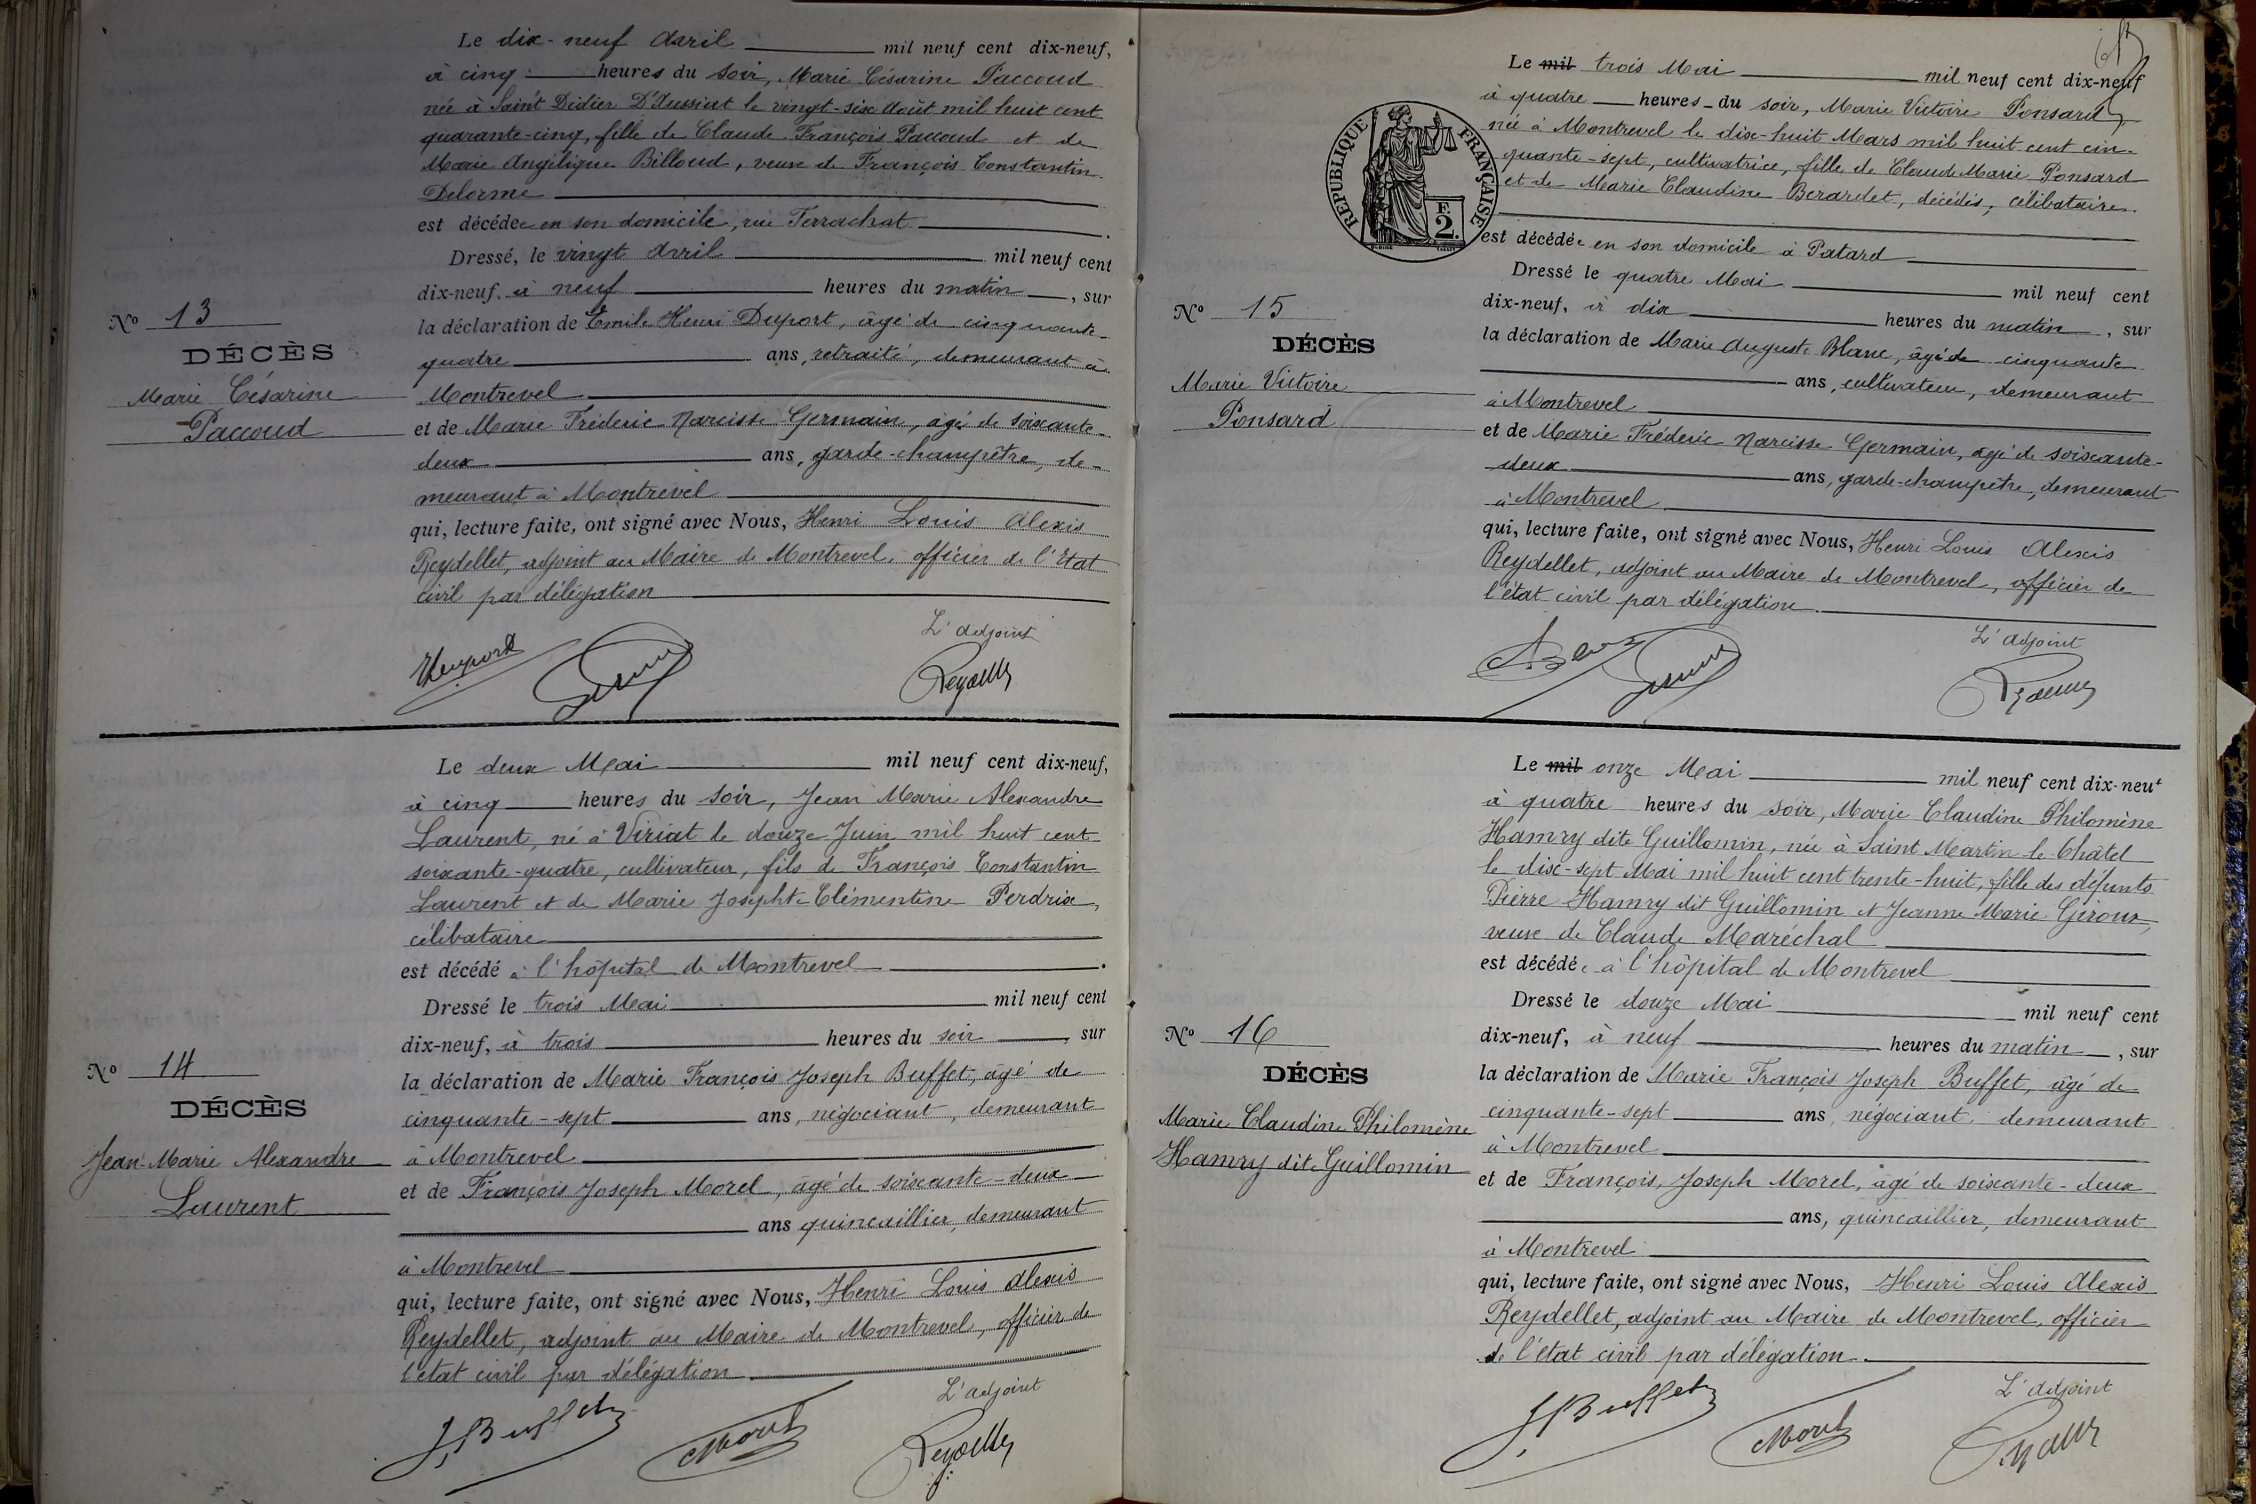 Le dix-neuf Avril mil neuf cent dix-neuf,
à cinq heures du soir, Marie Césarine Paccoud
née à Saint Didier D'Aussiat le vingt-six Août mil huit cent
quarante-cinq, fille de Claude François Paccoud et de
Marie Angélique Billoud, veuve de François Constantin
Delorme
est décédée en son domicile, rue Ferrachat.
Dressé, le vingt Avril mil neuf cent
dix-neuf, à neuf heures du matin, sur
la déclaration de Emile Henri Duport, âgé de cinquante-
quatre ans, retraité, demeurant à
Montrevel
et de Marie Fréderic Narcisse Germain, âgé de soixante-
deux ans, garde-champêtre, de-
meurant à Montrevel
qui, lecture faite, ont signé avec Nous, Henri Louis Alexis
Reydellet, adjoint au Maire de Montrevel, officier de l'Etat
civil par délégation
L'adjoint
No 13
DÉCÈS
Marie Césarine
Paccoud
Le deux Mai mil neuf cent dix-neuf,
à cinq heures du soir, Jean Marie Alexandre
Laurent, né à Viriat le douze Juin mil huit cent
soixante-quatre, cultivateur, fils de François Constantin
Laurent et de Marie Josephte Clémentine Perdrix,
célibataire
est décédé à l'hôpital de Montrevel.
Dressé le trois Mai mil neuf cent
dix-neuf, à trois heures du soir, sur
la déclaration de Marie François Joseph Buffet, âgé de
cinquante-sept ans, négociant, demeurant
à Montrevel
et de François Joseph Morel, âgé de soixante-deux
ans quincaillier, demeurant
à Montrevel
qui, lecture faite, ont signé avec Nous, Henri Louis Alexis
Reydellet, adjoint au Maire de Montrevel, officier de
l'état civil par délégation
J. Buffet Morel L'adjoint
No 14
DÉCÈS
Jean-Marie Alexandre
Laurent
RÉPUBLIQUE FRANÇAISE
F. 2.
Le mil trois Mai mil neuf cent dix-neuf
à quatre heures du soir, Marie Victoire Ponsard
née à Montrevel le dix-huit Mars mil huit cent cin-
quante-sept, cultivatrice, fille de Claude Marie Ponsard
et de Marie Claudine Berardet, décédés, célibataire.
est décédée en son domicile à Patard
Dressé le quatre Mai mil neuf cent
dix-neuf, à dix heures du matin, sur
la déclaration de Marie Auguste Blanc, âgé de cinquante
ans, cultivateur, demeurant
à Montrevel
et de Marie Fréderic Narcisse Germain, âgé de soixante-
deux ans, garde-champêtre, demeurant
à Montrevel
qui, lecture faite, ont signé avec Nous, Henri Louis Alexis
Reydellet, adjoint au Maire de Montrevel, officier de
l'état civil par délégation.
L'adjoint
No 15
DÉCÈS
Marie Victoire
Ponsard
Le mil onze Mai mil neuf cent dix-neuf
à quatre heures du soir, Marie Claudine Philomène
Hamry dite Guillomin, née à Saint Martin-le-Châtel
le dix-sept Mai mil huit cent trente-huit, fille des défunts
Pierre Hamry dit Guillomin et Jeanne Marie Giroux,
veuve de Claude Maréchal
est décédée à l'hôpital de Montrevel
Dressé le douze Mai mil neuf cent
dix-neuf, à neuf heures du matin, sur
la déclaration de Marie François Joseph Buffet, âgé de
cinquante-sept ans, négociant demeurant
à Montrevel
et de François, Joseph Morel, âgé de soixante-deux
ans, quincaillier, demeurant
à Montrevel
qui, lecture faite, ont signé avec Nous, Henri Louis Alexis
Reydellet, adjoint au Maire de Montrevel, officier
de l'état civil par délégation.
J. Buffet Morel L'adjoint
No 16
DÉCÈS
Marie Claudine Philomène
Hamry dite Guillomin